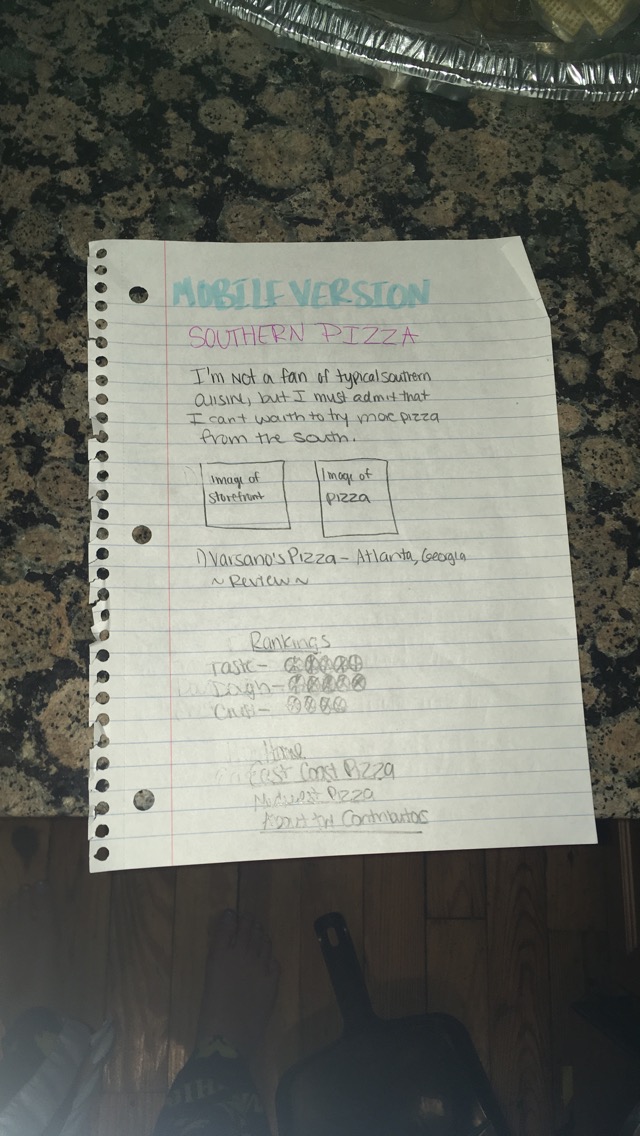 MOBILE VERSION
SOUTHERN PIZZA
I'm not a fan of typical southern
cuisine, but I must admit that
I can't waith to try more pizza
from the south.
Image of
Storefront
Image of
pizza
1) Varsano's Pizza - Atlanta, Georgia
~ Review ~
Rankings
Taste -
Dough -
Crust -
Home
East Coast Pizza
Midwest Pizza
About the Contributors